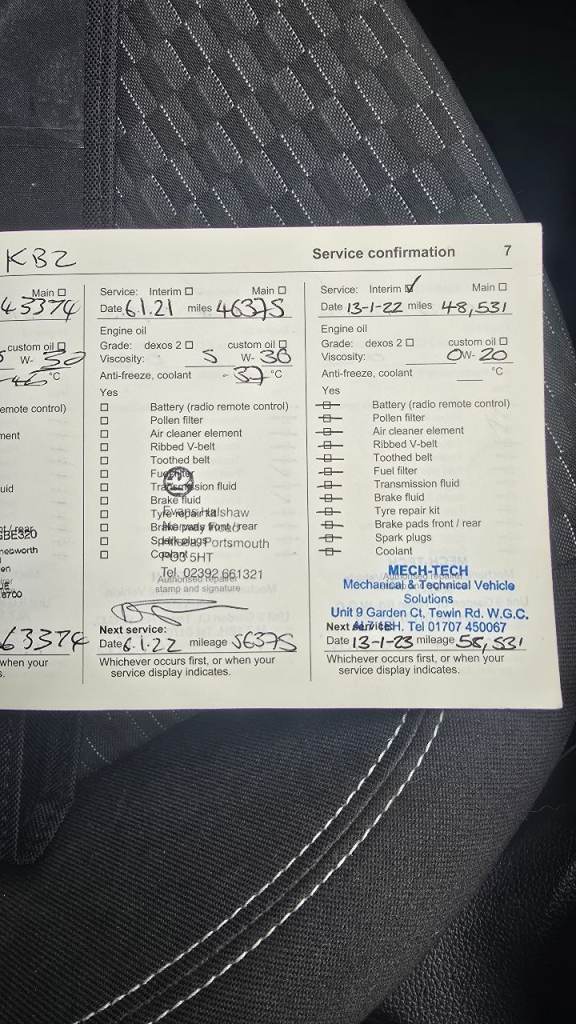 KBZ
Service confirmation 7
Main
43374
custom oil
W- 30
°C
emote control)
ment
uid
t / rear
GBE320
nebworth
en
8700
63374
when your
s.
Service: Interim Main
Date 6.1.21 miles 46375
Engine oil
Grade: dexos 2 custom oil
Viscosity: 5 W- 30
Anti-freeze, coolant -37 °C
Yes
Battery (radio remote control)
Pollen filter
Air cleaner element
Ribbed V-belt
Toothed belt
Fuel filter
Transmission fluid
Brake fluid
Tyre repair kit
Evans Halshaw
Brake pads front / rear
Norway Road
Spark plugs
Hilsea, Portsmouth
Coolant
PO3 5HT
Tel. 02392 661321
Authorised repairer
stamp and signature
Next service:
Date 6.1.22 mileage 56375
Whichever occurs first, or when your
service display indicates.
Service: Interim Main
Date 13-1-22 miles 48,531
Engine oil
Grade: dexos 2 custom oil
Viscosity: 0W- 20
Anti-freeze, coolant °C
Yes
Battery (radio remote control)
Pollen filter
Air cleaner element
Ribbed V-belt
Toothed belt
Fuel filter
Transmission fluid
Brake fluid
Tyre repair kit
Brake pads front / rear
Spark plugs
Coolant
MECH-TECH
Mechanical & Technical Vehicle
Solutions
Unit 9 Garden Ct, Tewin Rd. W.G.C.
Next service:
AL7 1BH. Tel 01707 450067
Date 13-1-23 mileage 58,531
Whichever occurs first, or when your
service display indicates.